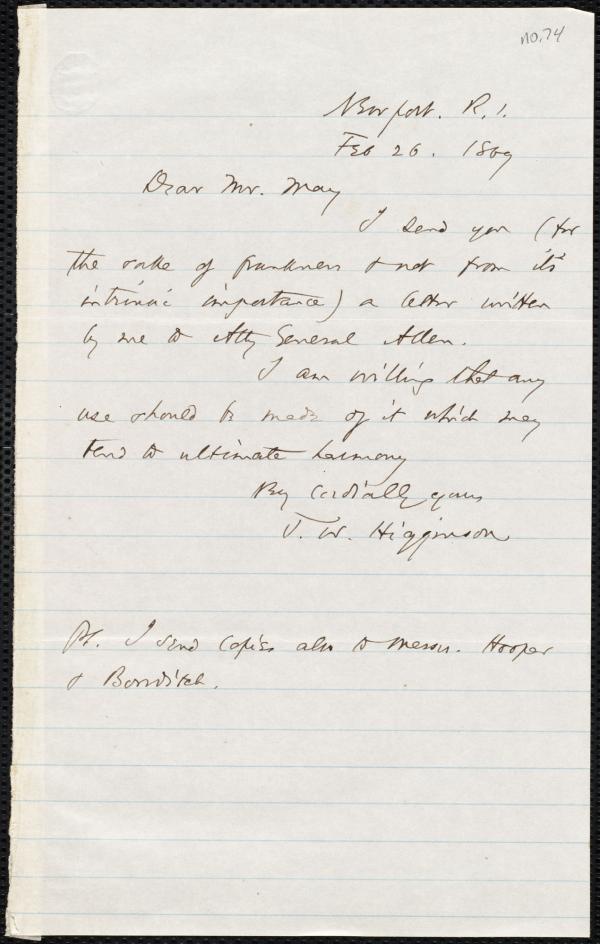 no. 74
Newport. R.I.
Feb 26. 1869
Dear Mr. May
I send you (for
the sake of frankness & not from its
intrinsic importance) a letter written
by me to Atty General Allen.
I am willing that any
use should be made of it which may
tend to ultimate harmony
cordially yours
T. W. Higginson
Ps. I send copies also to Messrs. Hooper
& Bowditch.